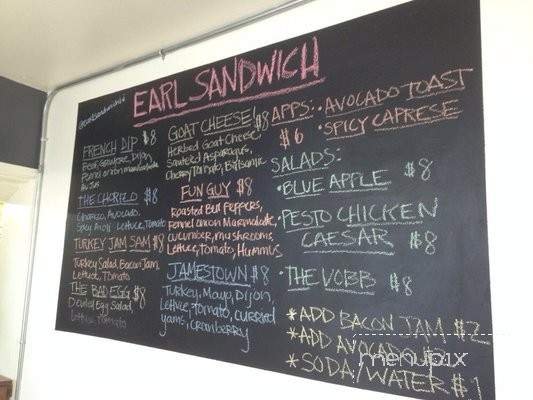 EARL SANDWICH
FRENCH DIP $8
Beef, Gruyere, Dijon,
Fennel onion marmalade
Au Jus
THE CHORIZO $8
Chorizo, Avocado,
Spicy Aioli, Lettuce, Tomato
TURKEY JAM SAM $8
Turkey, Salad, Bacon Jam,
Lettuce, Tomato
THE BAD EGG $8
Deviled Egg Salad,
Lettuce, Tomato
GOAT CHEESE! $8
Herbed Goat Cheese,
Sauteed Asparagus,
Cherry Tomato, Balsamic
FUN GUY $8
Roasted Bell Peppers,
Fennel Onion Marmalade,
cucumber, mushrooms,
Lettuce, Tomato, Hummus
JAMESTOWN $8
Turkey, Mayo, Dijon,
Lettuce, Tomato, curried
yams, cranberry
APPS: • AVOCADO TOAST
$6 • SPICY CAPRESE
SALADS:
• BLUE APPLE $8
• PESTO CHICKEN
CAESAR $8
• THE VOBB $8
* ADD BACON JAM $2
* ADD AVOCADO
* SODA/WATER $1
menupix